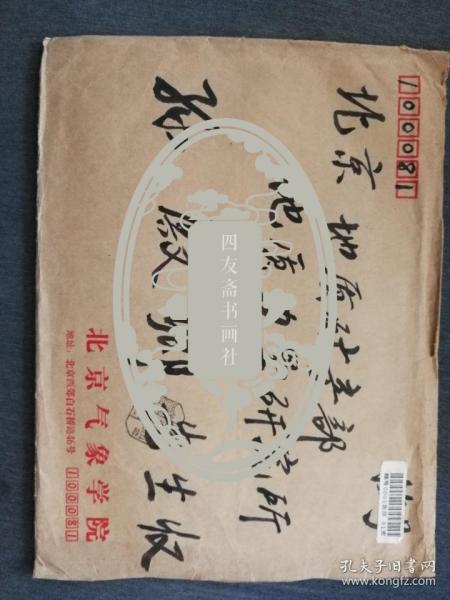 100081
北京 地质矿产部
地质 研究所
先生收
北京气象学院
地址：北京西郊白石桥路46号
100081
四友斋书画社
孔夫子旧书网
www.kongfz.com